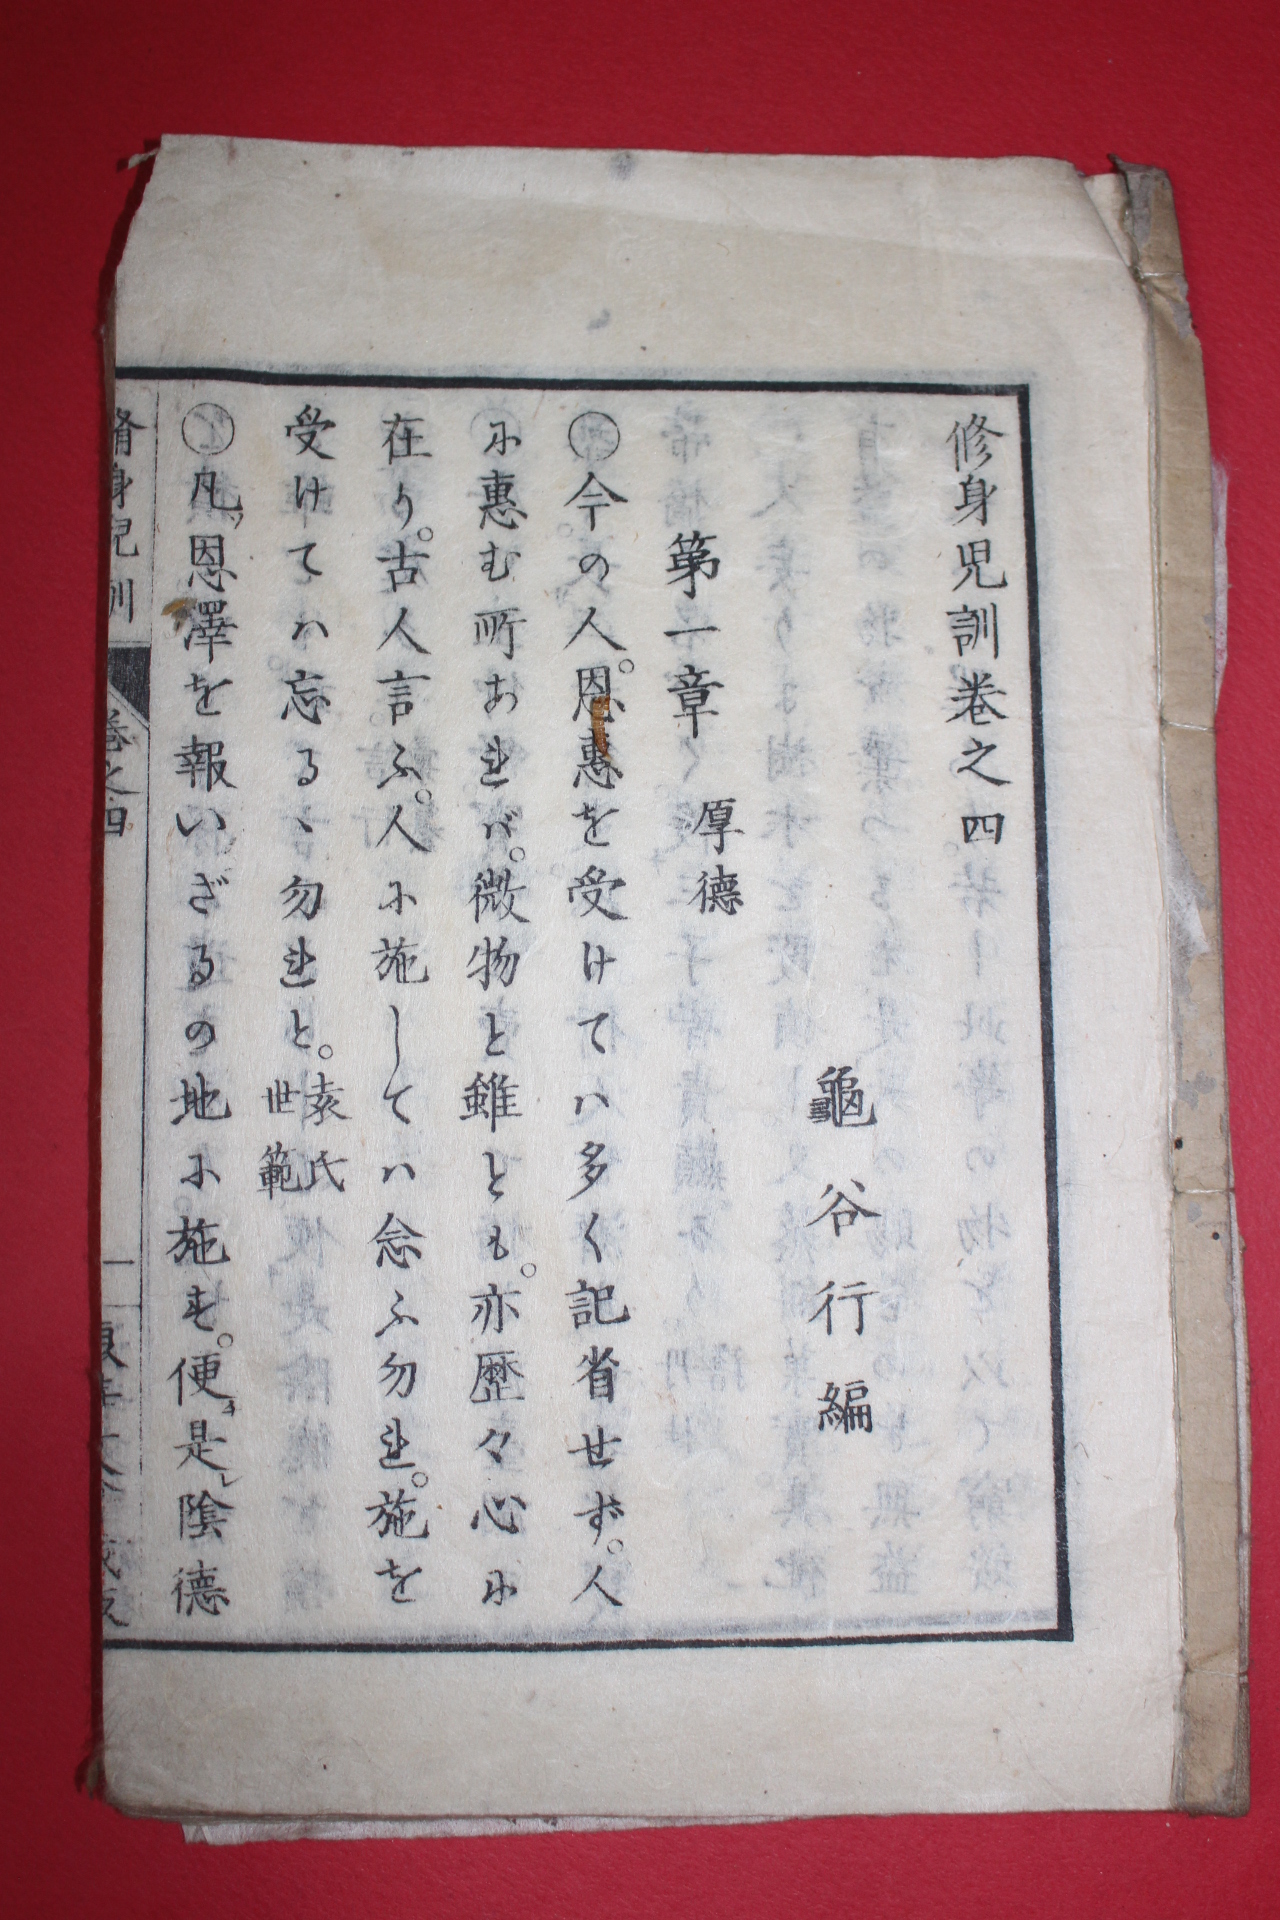 修身児訓巻之四
龜谷行編
第一章　厚德
○今の人。恩惠を受けてハ多く記省せず。人
に惠む所あれバ。微物と雖とも。亦歴々心に
在り。古人言ふ。人に施してハ念ふ勿れ。施を
受けてハ忘るゝ勿れと。袁氏世範
○凡ソ恩澤を報いざるの地に施す。便チ是レ陰德
脩身児訓
巻之四
一